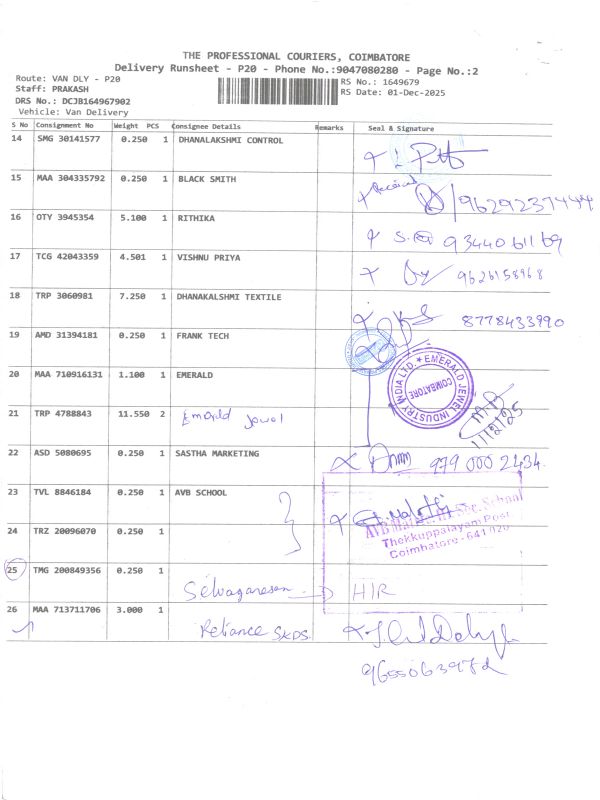 THE PROFESSIONAL COURIERS, COIMBATORE
Delivery Runsheet - P20 - Phone No.:9047080280 - Page No.:2
Route: VAN DLY - P20
Staff: PRAKASH
DRS No.: DCJB164967902
Vehicle: Van Delivery
RS No.: 1649679
RS Date: 01-Dec-2025
S No Consignment No Weight PCS Consignee Details Remarks Seal & Signature
14 SMG 30141577 0.250 1 DHANALAKSHMI CONTROL
15 MAA 304335792 0.250 1 BLACK SMITH Received 9629237444
16 OTY 3945354 5.100 1 RITHIKA 9344061169
17 TCG 42043359 4.501 1 VISHNU PRIYA 9626158968
18 TRP 3060981 7.250 1 DHANAKALSHMI TEXTILE 8778433990
19 AMD 31394181 0.250 1 FRANK TECH
20 MAA 710916131 1.100 1 EMERALD
EMERALD JEWEL INDUSTRY INDIA LTD.
COIMBATORE
21 TRP 4788843 11.550 2 Emerald Jewel 1/12/25
22 ASD 5080695 0.250 1 SASTHA MARKETING 979 000 2434
23 TVL 8846184 0.250 1 AVB SCHOOL
Sec. School
Thekkuppalayam Post
Coimbatore - 641 020
24 TRZ 20096070 0.250 1
25 TMG 200849356 0.250 1 Selvaganesan HIR
26 MAA 713711706 3.000 1 Reliance SKDS.